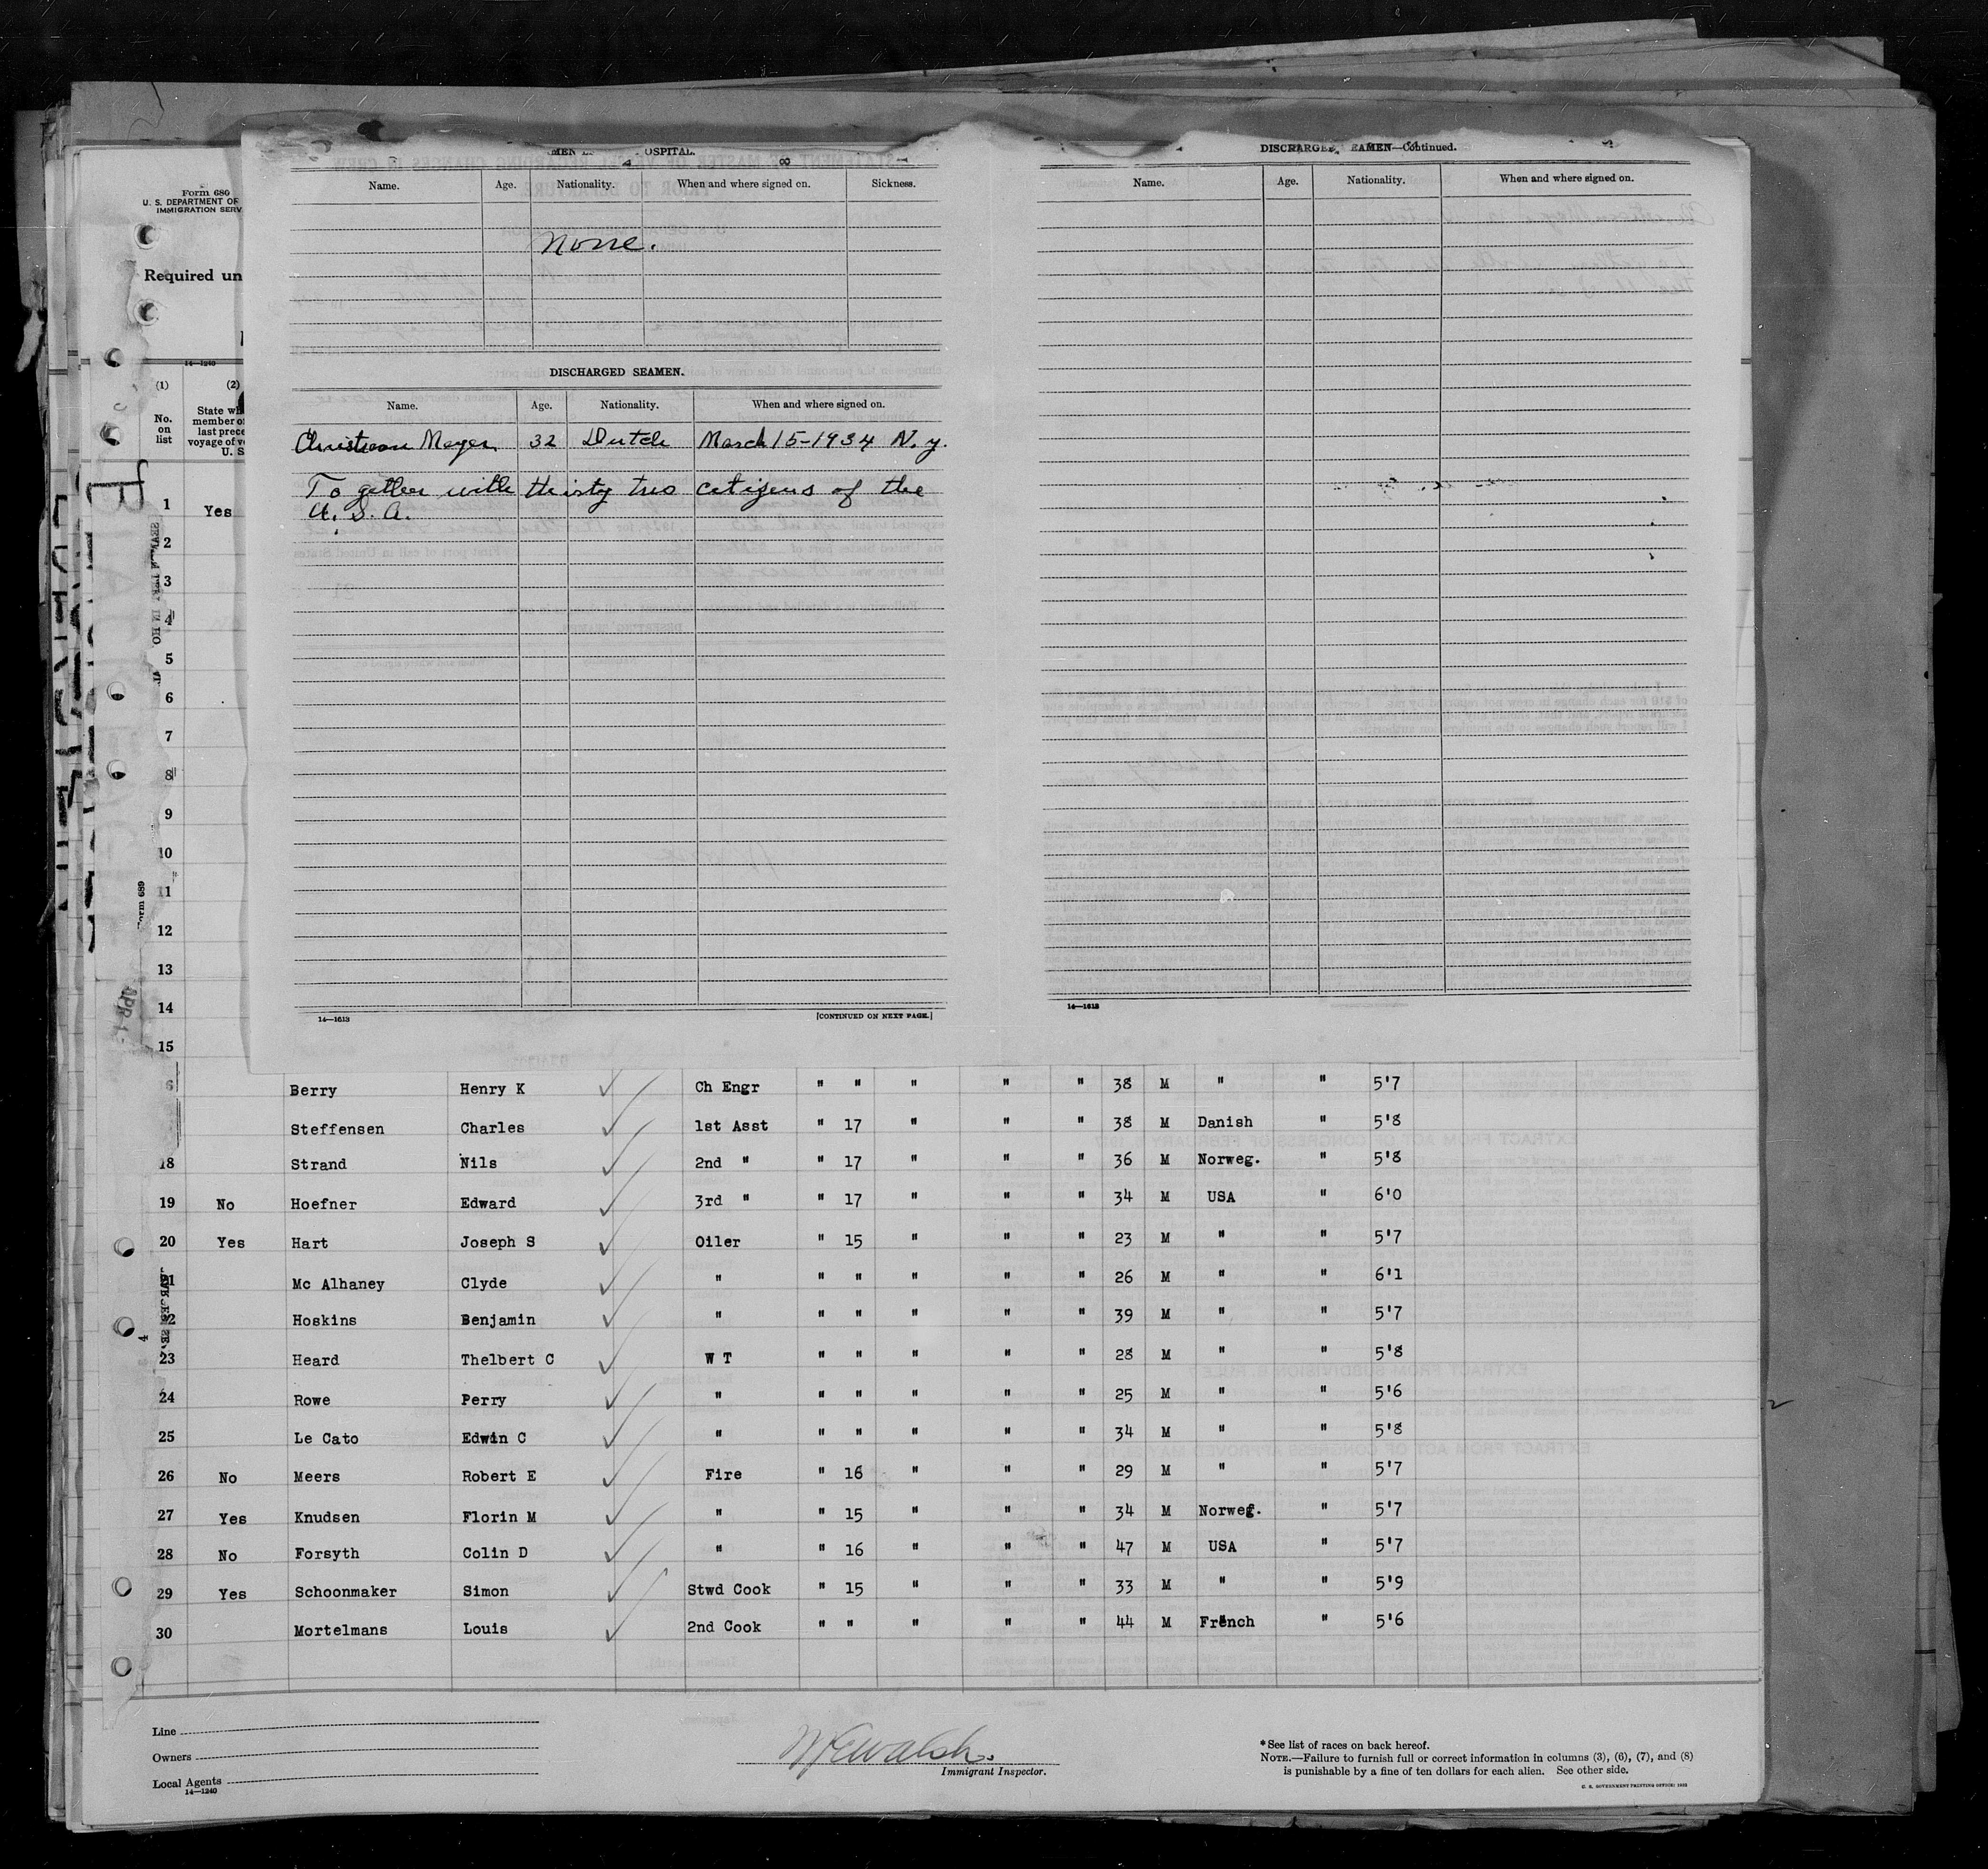 Form 680
U. S. DEPARTMENT OF
IMMIGRATION SERV
Required un
14—1240
(1) (2)
No. on list
State wh
member of
last prece
voyage of ve
U. S.
OSPITAL.
Name. Age. Nationality. When and where signed on. Sickness.
None.
DISCHARGED SEAMEN.
Name. Age. Nationality. When and where signed on.
Christian Meyer 32 Dutch March 15-1934 N.y.
To gether with thirty two citizens of the
U. S. A.
14—1613 [CONTINUED ON NEXT PAGE.]
DISCHARGED SEAMEN—Continued.
Name. Age. Nationality. When and where signed on.
14—1613
Form 689
APR 1
1 Yes
2
3
4
5
6
7
8
9
10
11
12
13
14
15
6 Berry Henry K Ch Engr " " " " " 38 M " " 5'7
Steffensen Charles 1st Asst " 17 " " " 38 M Danish " 5'8
18 Strand Nils 2nd " " 17 " " " 36 M Norweg. " 5'8
19 No Hoefner Edward 3rd " " 17 " " " 34 M USA " 6'0
20 Yes Hart Joseph S Oiler " 15 " " " 23 M " " 5'7
21 Mc Alhaney Clyde " " " " " " 26 M " " 6'1
22 Hoskins Benjamin " " " " " " 39 M " " 5'7
23 Heard Thelbert C W T " " " " " 28 M " " 5'8
24 Rowe Perry " " " " " " 25 M " " 5'6
25 Le Cato Edwin C " " " " " " 34 M " " 5'8
26 No Meers Robert E Fire " 16 " " " 29 M " " 5'7
27 Yes Knudsen Florin M " " 15 " " " 34 M Norweg. " 5'7
28 No Forsyth Colin D " " 16 " " " 47 M USA " 5'7
29 Yes Schoonmaker Simon Stwd Cook " 15 " " " 33 M " " 5'9
30 Mortelmans Louis 2nd Cook " " " " " 44 M French " 5'6
Line
Owners
Local Agents
14—1240
Walsh
Immigrant Inspector.
* See list of races on back hereof.
NOTE.—Failure to furnish full or correct information in columns (3), (6), (7), and (8)
is punishable by a fine of ten dollars for each alien. See other side.
U. S. GOVERNMENT PRINTING OFFICE: 1932